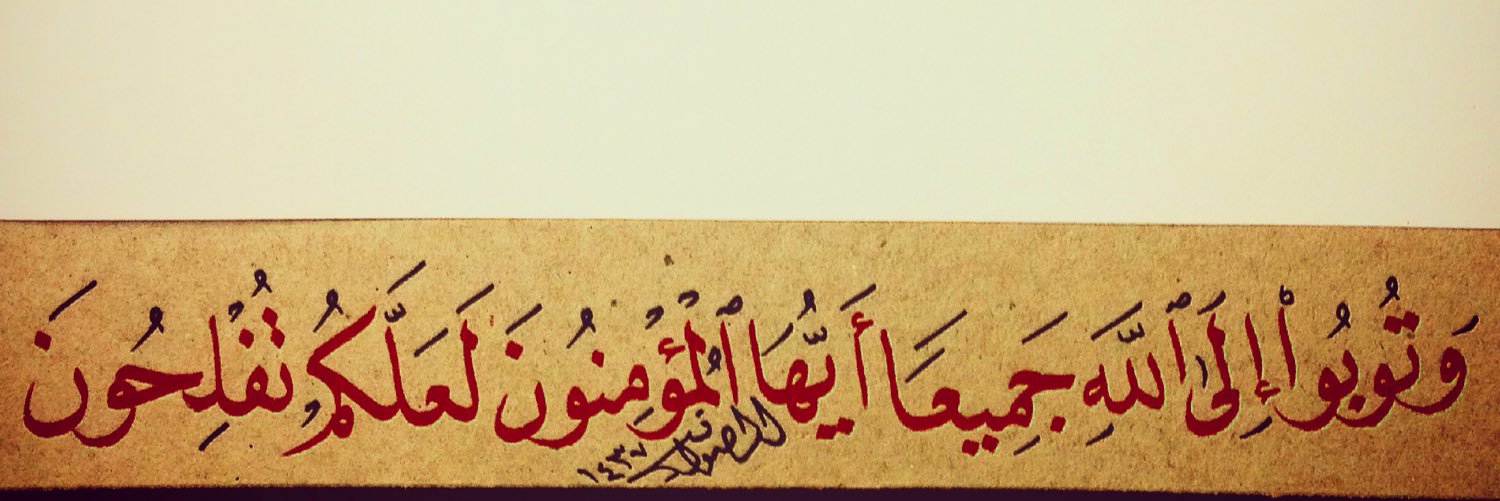 وَتُوبُوا۟ إِلَى ٱللَّهِ جَمِيعًا أَيُّهَا ٱلْمُؤْمِنُونَ لَعَلَّكُمْ تُفْلِحُونَ
١٤٣٧